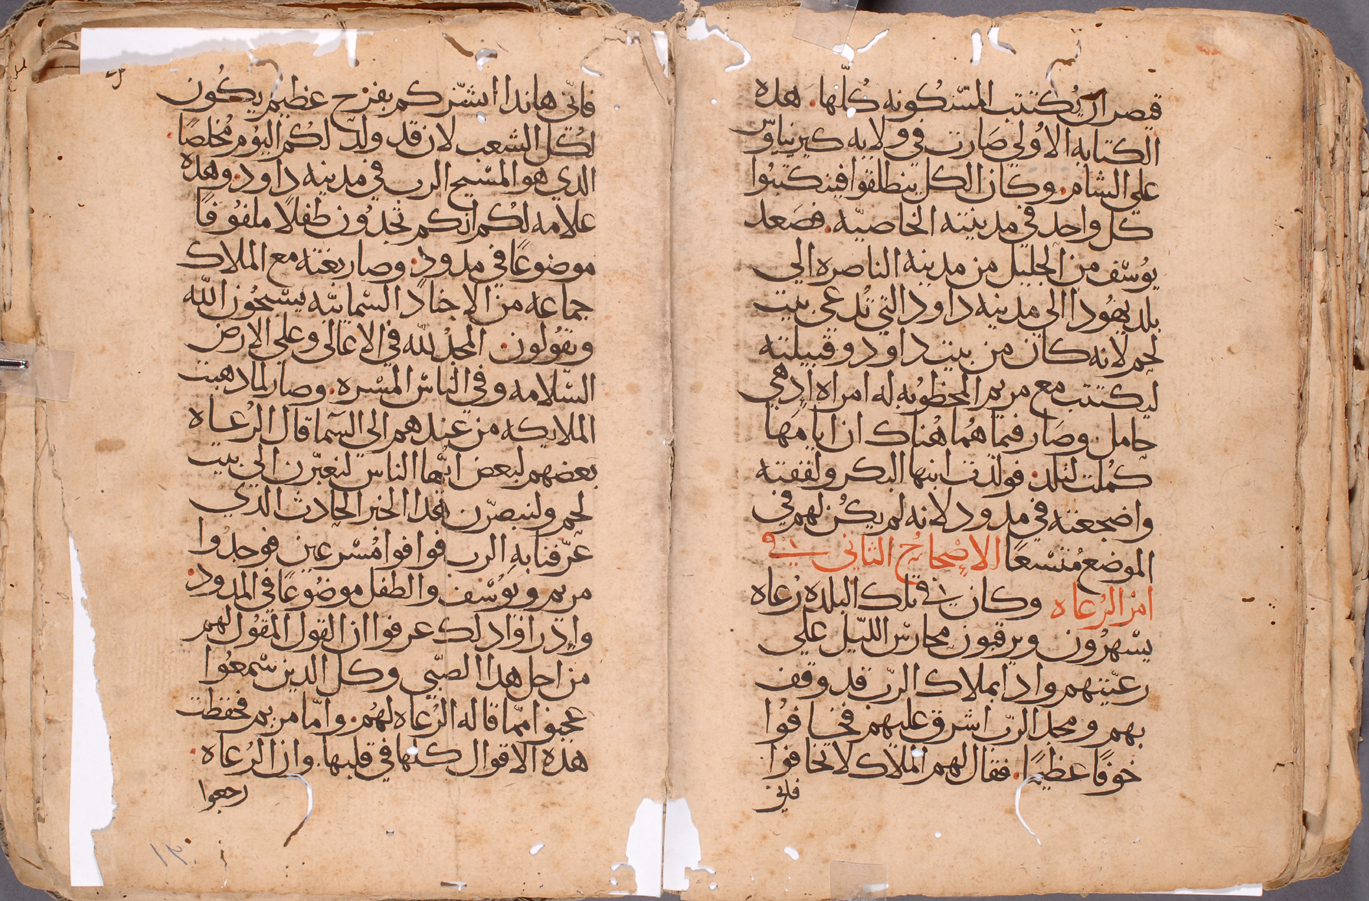 قيصر ان يُكتتب المسْكونه كلّها. هذه
الكتابه الاُولي صَارت في ولايه كيرنياوسْ
علي الشام. وكان الكل ينطلقوا فيتكتبُوا
كل واحد في مدينته الخاصيّه. فصَعد
يوُسْف من الجليل من مدينه الناصره الي
بلد يهُودا الى مدينه داود التي تدعى بيت
لحم لانه كان من بيت داود وقبيلته
ليكتتب مع مريم المخطوبُه له امراه اذ هي
حامل. وصَار فيما هُما هُناك ان ايامهَا
كمُلت لتلد. فولدت ابنها البكر ولففته
واضجعته في مدود لانه لم يكُن لهم في
الموضع مُتسْعا الاصْحاحُ الثاني ١ في
امر الرُعاه وكان ١ في تلك البلده رُعاه
يسْهرُون ويرقبون محارسْ الليْل على
رعيّتهم واذا بملاك الربّ قد وقف
بهم ومجد الربّ اشرق عليهم فخافوُا
خوفًا عظيمًا. فقال لهم الملاك لا تخافوا
فاني
فاني هاندا ابشّركم بفرح عظيم يكُون
لكُل الشعب لان قد ولد لكُم اليوُم مُخلصًا
الدي هو المسْيح الرب في مدينه داود. وهذه
علامه لكُم انكم تجدُون طفلًا ملفُوفًا
موضوعًا في مدود. وصار بغته مع الملاك
جماعه من الاجناد السْمائيّه يسْبحُون اللّه
ويقوُلون. المجدُ للّه في الاعالى وعلى الارض
السْلامه وفي الناسْ المسْره. وصار لما دهبت
الملايكه من عندهم الي السّما قال الرُعاه
بعضهم لبعض ايّها الناس لنعبرن الي بيت
لحم ولنبصرن هدا الخبر الحادث الدي
عرّفنا به الرب فوافوا مُسْرعين فوجدُوا
مريم ويوُسْف والطفل موضُوعًا في المدود.
واذ راوا دلك عرفوا ان القول المقوُل لهم
من اجل هدا الصّبي وكل الدين سْمعُوا
عجبوا ممّا قاله الرُعاه لهُم. وامّا مريم فحفظت
هذه الاقوال كلها في قلبها. وان الرُعاه.
رجعوا